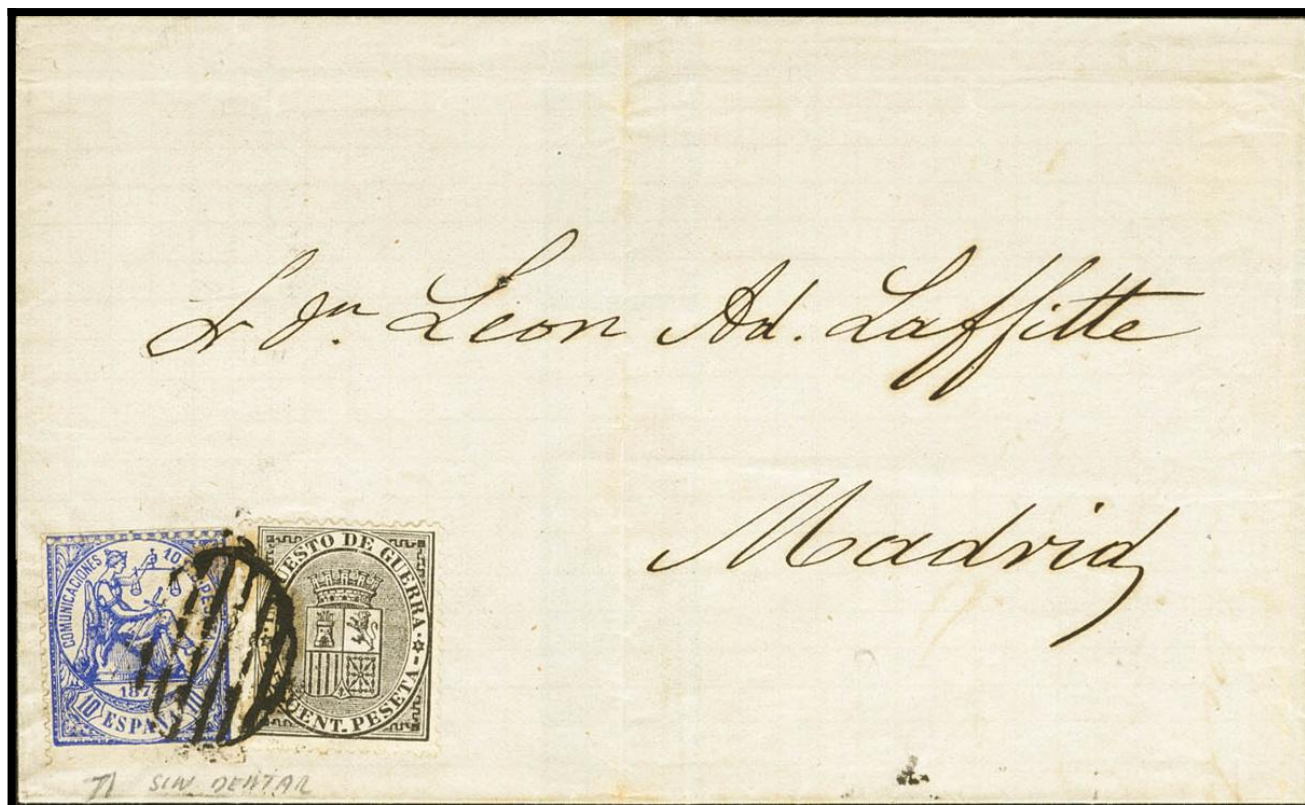 Sr Dn. Leon Ad. Laffitte
Madrid
COMUNICACIONES 10
187
10 ESPAÑA
UESTO DE GUERRA
CENT. PESETA
SIN DENTAR